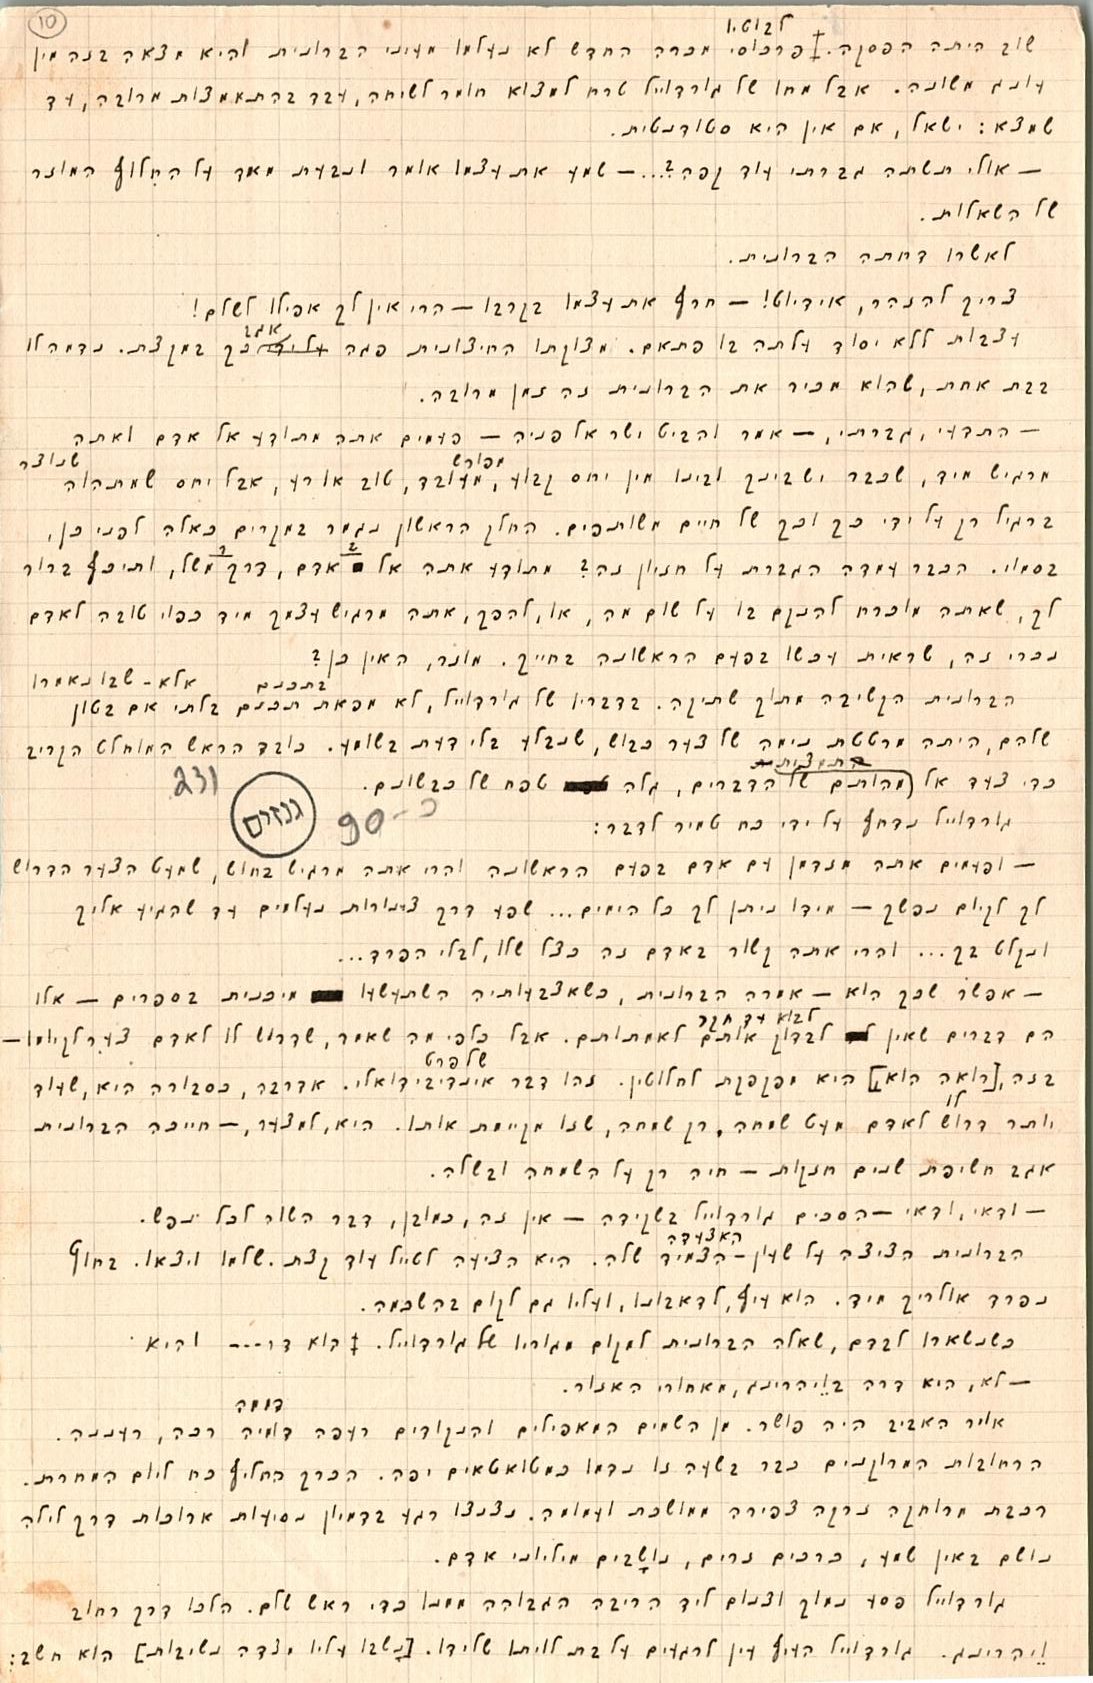 10
לבוטיו
שוב היתה הפסקה. פרכוסי מכרה החדש לא נעלמו מעיני הברונית והיא מצאה בזה מין
עונג משונה. אבל מחו של גורדוייל טרח למצוא חומר לשיחה, עבד בהתאמצות מרובה, עד
שמצא: ישאל, אם אין היא סטודנטית.
— אולי תשתה גברתי עוד קפה?... — שמע את עצמו אומר ונבעת מאד על החלוף המוזר
של השאלות.
לאשרו דחתה הברונית.
צריך להזהר, אידיוט! — חרף את עצמו בקרבו — הרי אין לך אפילו לשלם!
אגב
עצבות ללא יסוד עלתה בו פתאם. מצוקתו החיצונית פגה על ידי כך במקצת. נדמה לו
בבת אחת, שהוא מכיר את הברונית זה זמן מרובה.
— התדעי, גברתי, — אמר והביט ישר אל פניה — פעמים אתה מתודע אל אדם ואתה
מפורש שנוצר
מרגיש מיד, שכבר יש בינך ובינו מין יחס קבוע, מעובד, טוב או רע, אבל יחס שמתהוה
ברגיל רק על ידי כך וכך של חיים משותפים. החלק הראשון נגמר במקרים כאלה לפני כן,
בסמוי. הכבר עמדה הגברת על חזיון זה? מתודע אתה אל אדם, דרך משל, ותיכף ברור
לך, שאתה מוכרח להנקם בו על שום מה, או, להפך, אתה מרגיש עצמך מיד כפוי טובה לאדם
נכרי זה, שראית עכשו בפעם הראשונה בחייך. מוזר, האין כן?
בתכנם אלא – שבו נאמרו
הברונית הקשיבה מתוך שתיקה. בדבריו של גורדוייל, לא מפאת תכנם בלתי אם בטון
שלהם, היתה מרטטת נימה של צער כבוש, שנבלע בלי דעת בשומע. כובד הראש המוחלט הקריב
התמצית
כדי צעד אל מהותם של הדברים, גלה טפח של כבשונם.
231
גנזים
90-כ
גורדוייל נדחף על ידי כח טמיר לדבר:
— ופעמים אתה מזדמן עם אדם בפעם הראשונה והרי אתה מרגיש בחוש, שמעט הצער הדרוש
לך לקיום נפשך — מידו ניתן לך כל הימים... שפע דרך צנורות נעלמים עד שהגיע אליך
ונקלט בך... והרי אתה קשור באדם זה כצל שלו, לבלי הפרד...
— אפשר שכך הוא — אמרה הברונית, כשאצבעותיה השתעשעו מיכנית בספרים — אלו
לבוא עד חקר
הם דברים שאין לבדוק אותם לאמתותם. אבל כלפי מה שאמר, שדרוש לו לאדם צער לקיומו —
שלפרט
בזה, [רואה הוא,] היא מפקפקת לחלוטין. זהו דבר אינדיבידואלי. אדרבה, כסבורה היא, שעוד
לו
יותר דרוש לאדם מעט שמחה, רק שמחה, שזו מקיימת אותו. היא, למצער, — חייכה הברונית
אגב חשיפת שנים חזקות — חיה רק על השמחה ובשלה.
— ודאי, ודאי — הסכים גורדוייל בשקידה — אין זה, כמובן, דבר השוה לכל נפש.
האצעדה
הברונית הציצה על שעון – הצמיד שלה. היא הציעה לטייל עוד קצת. שלמו ויצאו. בחוץ
נפרד אולריך מיד. הוא עיף, לדאבונו, ועליו גם לקום בהשכמה.
כשנשארו לבדם, שאלה הברונית למקום מגוריו של גורדוייל. הוא דר.... והיא
— לא, היא דרה בוֵיהרינג, מאחורי האזור.
דומה
אויר האביב היה פושר. מן השמים המאפילים והנקודים רעפה דומיה רכה, רעננה.
הרחובות המרוקנים כבר בשעה זו נדמו כמטואטאים יפה. הכרך החליף כח ליום המחרת.
רכבת מרוחקה זרקה צפירה ממושכת ועמומה. נצנצו רגע בדמיון נסיעות ארוכות דרך לילה
נושם באין שמע, כרכים זרים, נושבים מיליוני אדם.
גורדוייל פסע נמוך וצנום ליד הריבה הגבוהה ממנו כדי ראש שלם. הלכו דרך רחוב
וֵיהרינג. גורדוייל העיף עין לרגעים על בת לויתו שלידו. [נשבו עליו מצדה נשיבות] הוא חשב: